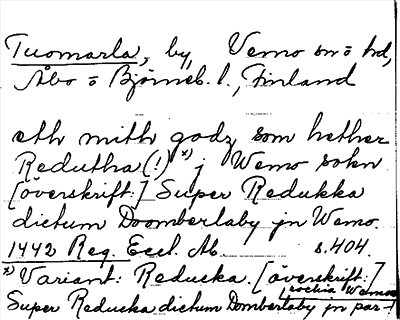 Tuomarla, by, Vemo sn o hd,
Åbo o Björneb. l., Finland
eth mith godz som hether
Redutha (!) x) j Wemo sokn
[överskrift:] Super Redukka
dictum Doomberlaby jn Wemo.
1442 Reg. Eccl. Ab. s. 404.
x) Variant: Reducka. [överskrift:]
Super Reducka dictum Domberlaby jn par-
rochia Wemo